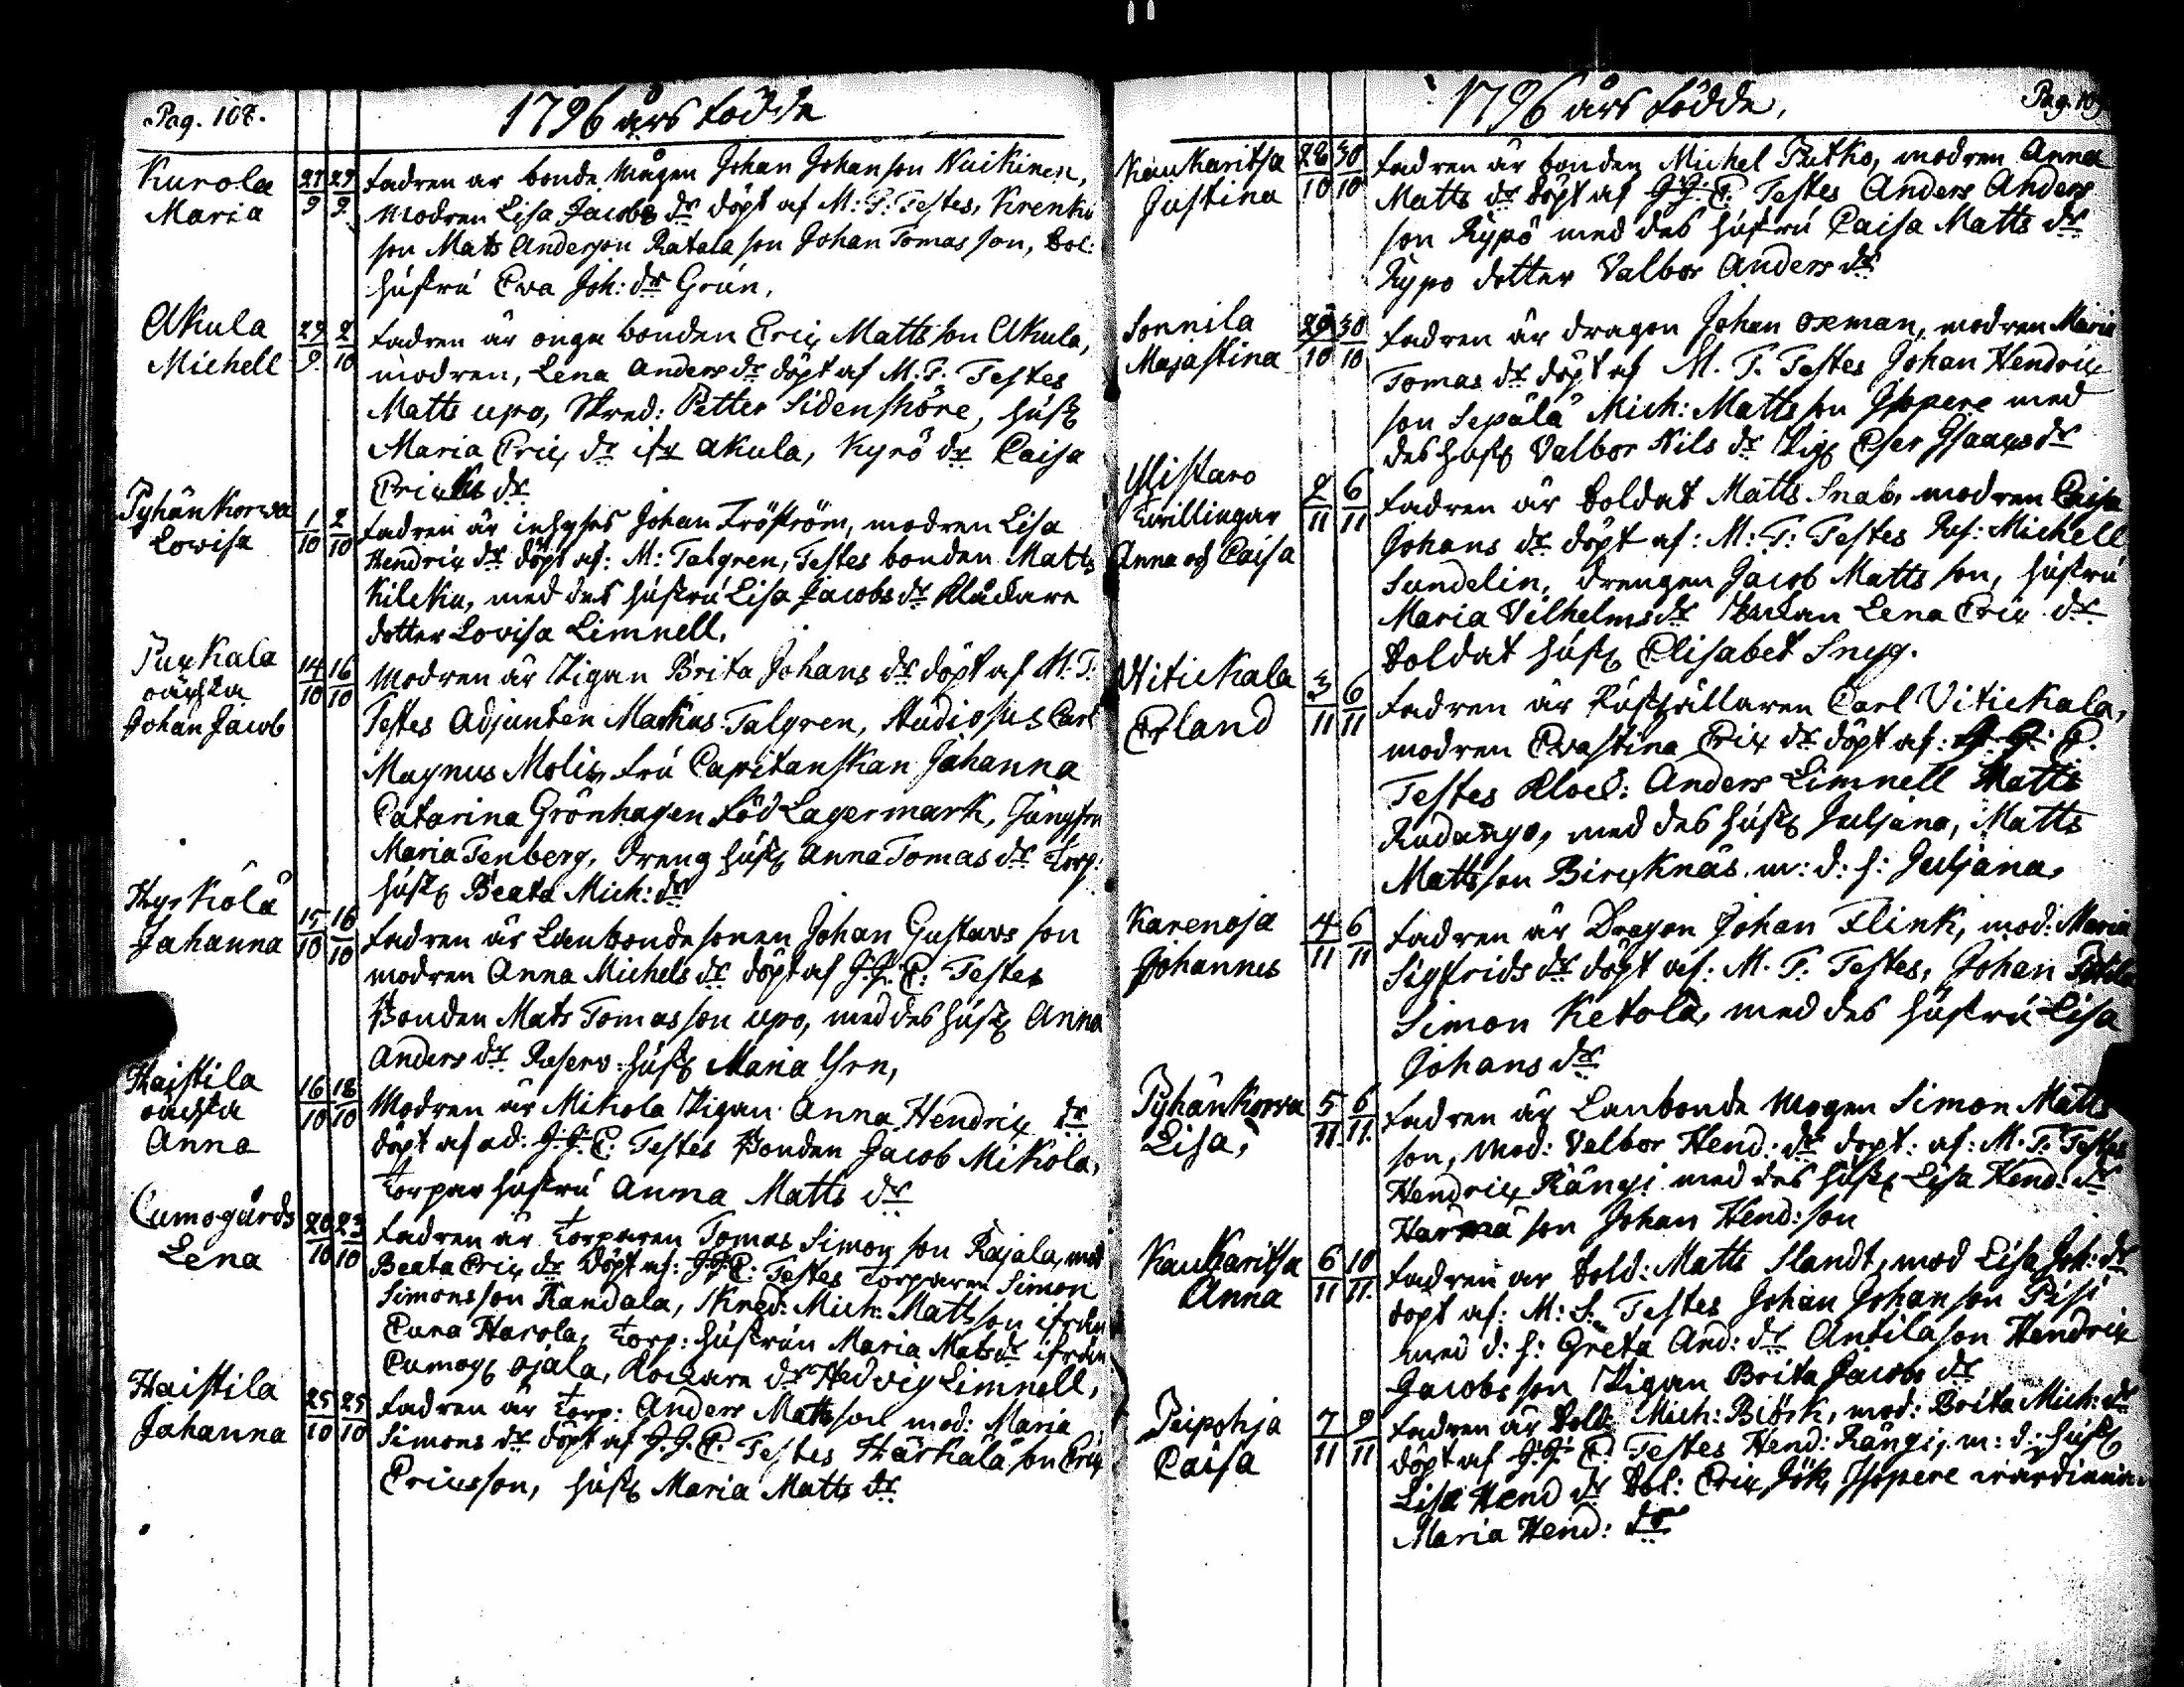 Pag. 108.
1796 års födde
Kurola
Maria
27 29
9 9
fadren är bonde mågen Johan Johanson Nuikinen,
modren Lisa Jacobs dr döpt af M: T: Testes, Krenki
son Mats Anderson Ratala son Johan Tomas son, Sol:
hústrú Eva Joh: dr Grún,
Akula
Michell
29 2
9. 10
fadren är onga bonden Erix Matts son Akula,
modren, Lena Anders dr döpt af M. T. Testes
Matts upo, Skred: Petter Sidensköre, húst
Maria Erix dr ifr akula, Kyrö dr Caisa
Erichs dr
Pyhänkorwa
Lovisa
1 2
10 10
fadren är inhyses Johan Fröström, modren Lisa
Hendrix dr döpt af: M: Talgren, Testes bonden Matts
Kileku, med des hústrú Lisa Jacobs dr Klåckare
dotter Lovisa Limnell.
Puxkala
oäckta
Johan Jacob
14 16
10 10
Modren är Pigan Brita Johans dr döpt af M. T.
Testes Adjunten Markus Talgren, Studiosus Carl
Magnus Molis, frú Capitanskan Johanna
Catarina Grönhagen föd Lagermark, Júngfrn
Maria Tenberg, dreng húst Anna Tomas dr Torp:
húst Beata Mich: dr
Hyrkölä
Jahanna
15 16
10 10
fadren är Lanbondesonen Johan Gustavs son
modren Anna Michels dr döpt af J. J. E: Testes
Bonden Mats Tomas son upo, med des húst Anna
Anders dr Reserv: húst Maria Yrn,
Haistila
oäckta
Anna
16 18
10 10
Modren är Mikola Pigan Anna Hendrix dr
döpt af ad: J. J. E: Testes Bonden Jacob Mikola,
Torpar hústrú Anna Matts dr
Cumogårds
Lena
20 23
10 10
fadren är Torparen Tomas Simon son Rajala, mod
Beata Erix dr Döpt af: J. J. E: Testes Torparen Simon
Simonsson Randala, Skred: Mich: Matts son ifrån
Cuna Harola, Torp: hústrún Maria Mats dr ifrån
Cumog ojala, Klockare dr Hedvig Limnell,
Haistila
Jahanna
25 25
10 10
fadren är Torp: Anders Matts son mod: Maria
Simons dr döpt af J. J. E. Testes Härkälä son Erix
Ericsson, húst Maria Matts dr
1796 års födde,
Pag. 109
Kaukaritsa
Justina
28 30
10 10
fadren är bonden Michel Putko, modren Anna
Matts dr döpt af J. J: E: Testes Anders Anders
son Kypö med des hústrú Caisa Matts dr
Kypo dotter Valbor Anders dr
Sonnila
Majastina
29 30
10 10
fadren är dragon Johan oxman, modren Maria
Tomas dr döpt af M. T. Testes Johan Hendrix
son Sepälä Mich: Matts son Isopere med
des húst Valbor Nils dr Pig Eser Isaacs dr
Ylistaro
Tvillingar
Anna och Caisa
2 6
11 11
fadren är Soldat Matts Snab, modren Caisa
Johans dr döpt af: M: T: Testes Ref: Michell
Sundelin, drengen Jacob Matts son, hústrú
Maria Vilhelms dr Lena Erix dr
Soldat húst Elisabet Snyg.
Vitickala
Erland
3 6
11 11
fadren är Rústhållaren Carl Vitickala,
modren Evastina Erix dr döpt af: J. J. E.
Testes Kloc: Anders Limnell Matts
Rudango, med des húst Juljana, Matts
Matts son Bircknäs m: d: h: Juljana,
Karenoja
Johannes
4 6
11 11
fadren är Dragon Johan Flink, mod: Maria
Sigfrids dr döpt af: M. T. Testes, Johan
Simon Ketola, med des hústrú Lisa
Johans dr
Pyhänkorva
Lisa,
5 6
11. 11.
fadren är Lanbonde mogen Simon Matts
son, Mod: Valbor Hend: dr dopt: af: M. T. Testes
Hendrix Rängi med des húst Lisa Hend: dr
Harma son Johan Hend: son
Kaukaritsa
Anna
6 10
11 11.
fadren är Sold: Matts Slandt, mod Lisa Joh: dr
dopt af: M: S. Testes Johan Johan son Pisi
med d: h: Greta And: dr Antila son Hendrix
Jacobs son Pigan Brita Jacobs dr
Peipohja
Caisa
7 9
11 11
fadren är Sold: Mich: Biörk, mod: Brita Mich: dr
döpt af J. J. E Testes Hend: Rängi, m: d: húst
Lisa Hend dr Sol: Erix Jök, Isopere wärdinnan
Maria Hend: dr